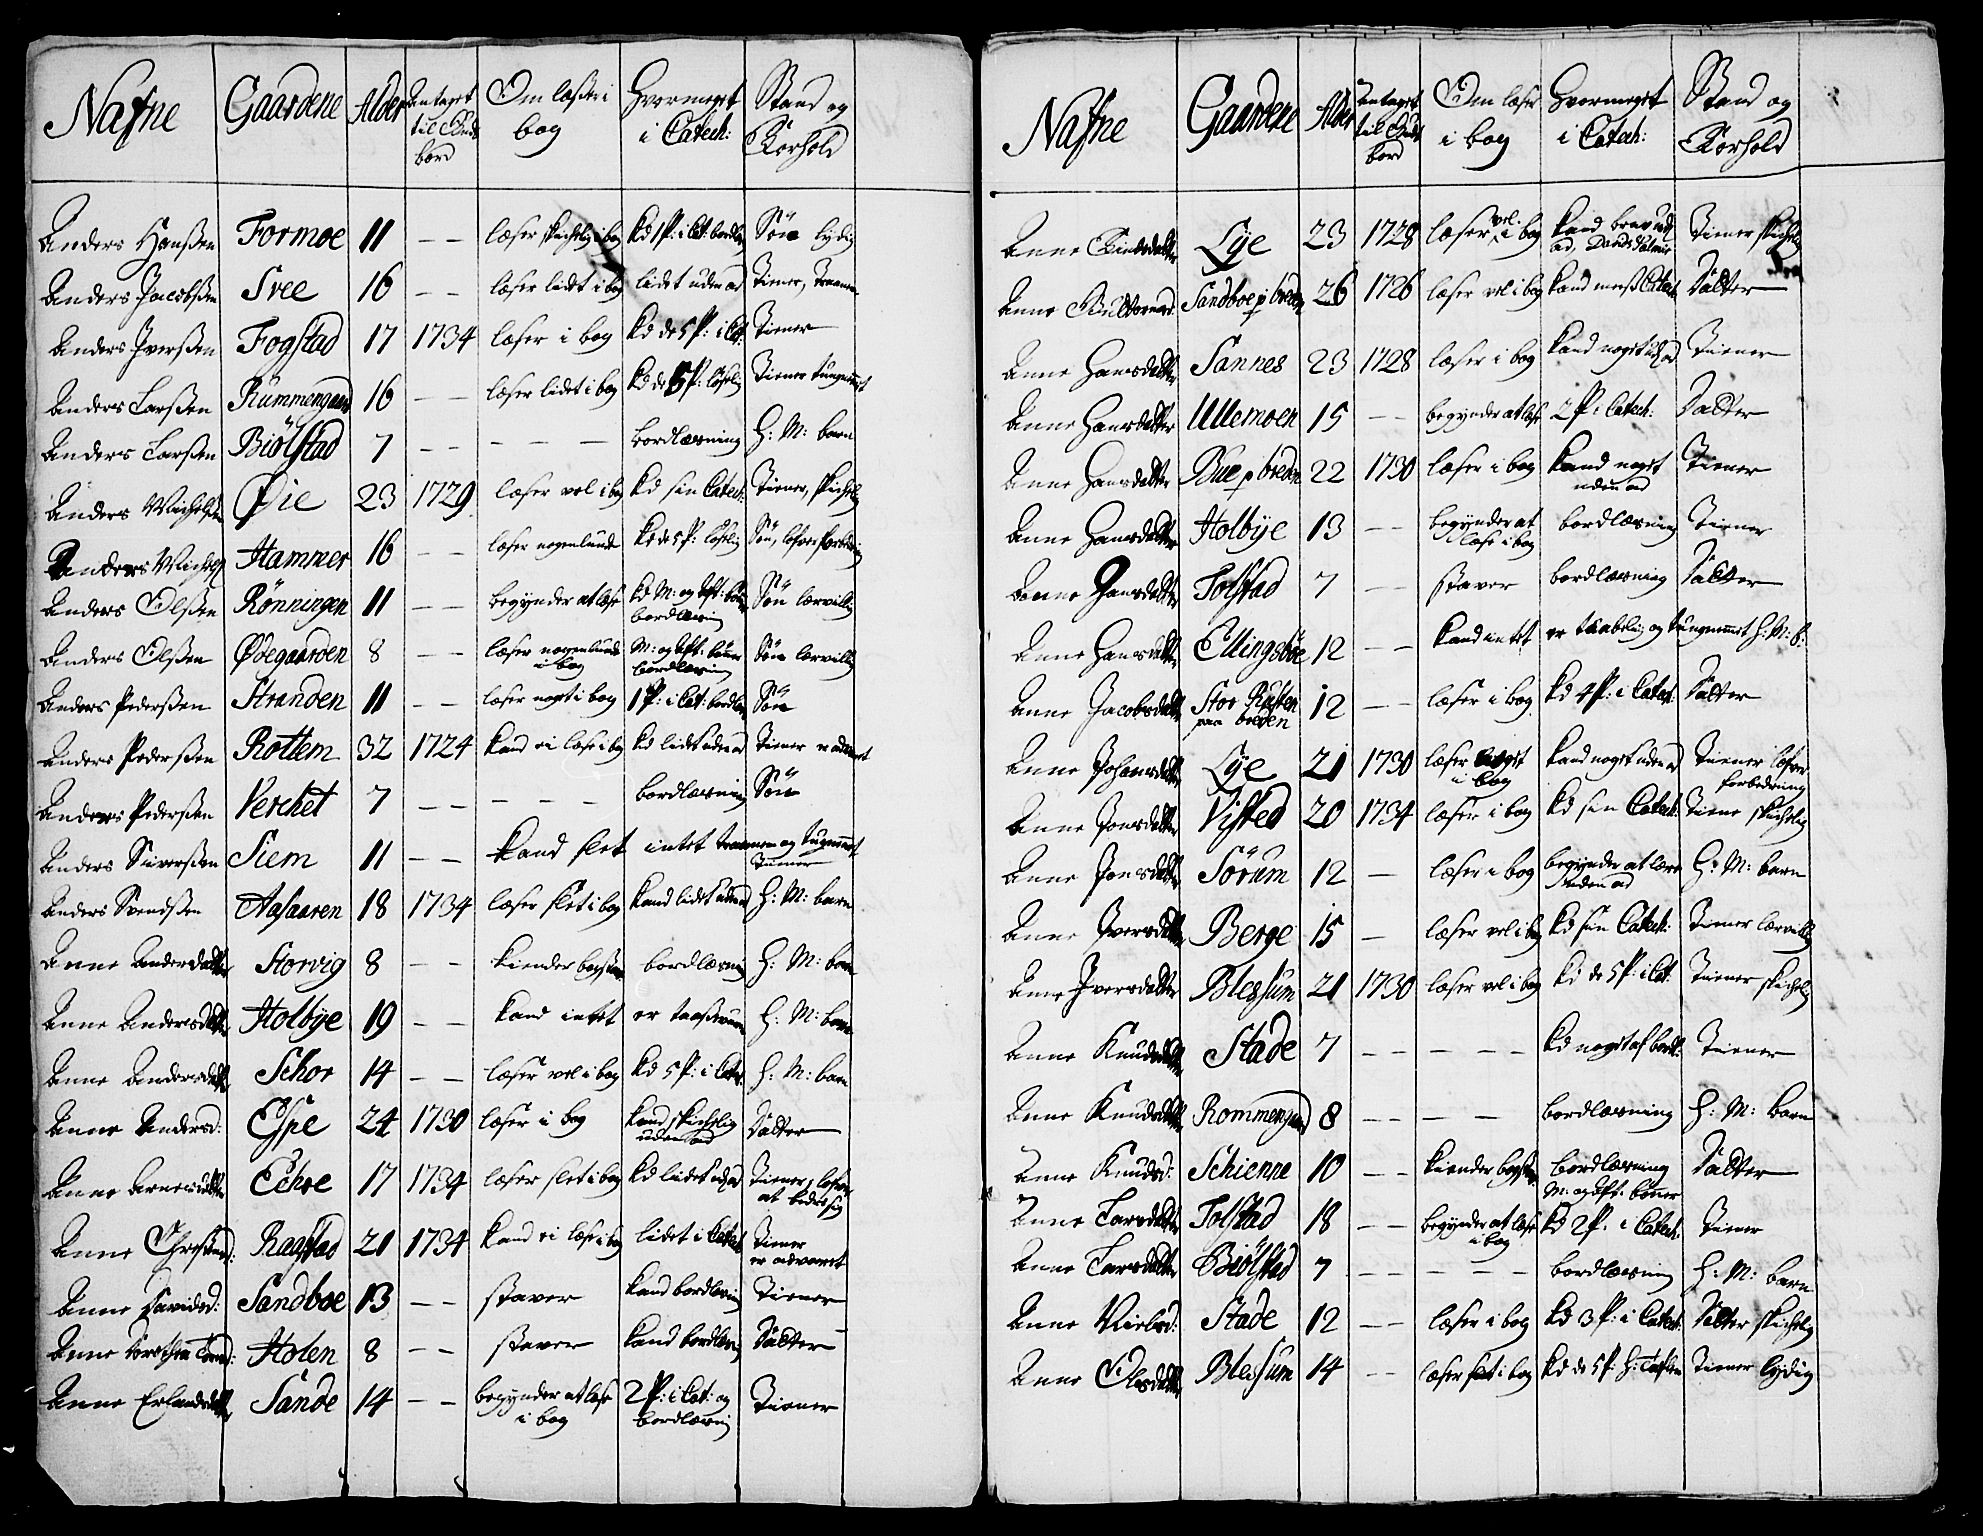 Nafne Gaardene Alder Antaget til Guds bord Om læser i bog Hvormeget i Catech: Stand og Forhold
Anders Hanßen Formoe 11 – – læser skichelig i bog kd 1 P: i Cat: bordlæsn Søn lydig
Anders Jacobßen Svee 16 – – læser lidet i bog lidet uden ad Tiener,
Anders Iverßen Fogstad 17 1734 læser i bog kd de 5 P: i Cat: Tiener
Anders Larßen Rummengaard 16 – – læser lidet i bog kd de 5 P: løselig Tiener tungnemt
Anders Larßen Biölstad 7 – – – – – bordlæsning H: M: barn
Anders Michelßen Öie 23 1729 læser vel i bog kd sin Catech: Tiener, skichelig
Anders Michelß Hammer 16 – – læser nogenlunde kd de 5 P: løselig Søn, lofver forbedring
Anders Olßen Rönningen 11 – – begynder at læse kd M: og Aft: bön bordlæsn Søn lærvillig
Anders Olßen Ödegaarden 8 – – læser nogenlunde i bog M: og Aft: bönner bordlæsn Søn lærvillig
Anders Pederßen Stranden 11 – – læser noget i bog 1 P: i Cat: bordlæs Søn
Anders Pederßen Rottem 32 1724 kand ei læse i bog kd lidet uden ad Tiener er advaret
Anders Pederßen Verchet 7 – – – – – bordlæsning Søn
Anders Siverßen Siem 11 – – kand slet intet og tugnemmet Tiener
Anders Svendßen Aasaaren 18 1734 læser slet i bog kand lidet uden ad H: M: barn
Anne Andersdatter Storvig 8 – – kiender bogstav bordlæsning H: M: barn
Anne Andersdatter Holbÿe 19 – – kand intet er H: M: barn
Anne Andersdatter Schor 14 – – læser vel i bog kd 5 P: i Catec H: M: barn
Anne Andersd: Espe 24 1730 læser i bog kand skichelig uden ad Datter
Anne Arnesdatter Echre 17 1734 læser slet i bog kd lidet ud ad Tiener, lofver at bedre sig
Anne Ragstad 21 1734 kand ei læse i bog lidet i Catech Tiener er advaret
Anne Davidsd: Sandboe 13 – – staver kand bordlæsn Tiener
Anne Dorothea Holen 8 – – staver kand bordlæsn Datter
Anne Erlandsdatter Sande 14 – – begynder at læse i bog 2 P: i Cat: og bordlæsning Tiener
Nafne Gaardene Alder Antaget til Guds bord Om læser i bog Hvormeget i Catech: Stand og Forhold
Anne Lÿe 23 1728 læser vel i bog kand brav ud ad Davids Psalmer Tiener skichelig
Anne Sandboe p breden 26 1726 læser vel i bog kand Catech Datter
Anne Hansdatter Sannes 23 1728 læser i bog kand noget ud ad Tiener
Anne Hansdatter Ullemoen 15 – – begynder at læse 2 P: i Catech: Datter
Anne Hansdatter Bue p breden 22 1730 læser i bog kand noget uden ad Tiener
Anne Hansdatter Holbÿe 13 – – begynder at læse i bog bordlæsning Tiener
Anne Hansdatter Tolstad 7 – – staver bordlæsning Datter
Anne Hansdatter Ellingsböe 12 – – kand intet er taabelig og tungnemmet H: M: b:
Anne Jacobsdatter Stor Rusten paa breden 12 – – læser i bog kd 4 P: i Catech Datter
Anne Johansdatter Lÿe 21 1730 læser noget i bog kand noget uden ad Tiener lofver forbedring
Anne Jonsdatter Visted 20 1734 læser i bog kd sin Catech: Tiener skichelig
Anne Jonsdatter Sörum 12 – læser i bog begynder at lære uden ad H: M: barn
Anne Iversdatter Berge 15 – læser vel i bog kd sin Catech: Tiener lærvillig
Anne Iversdatter Blessum 21 1730 læser vel i bog kd de 5 P: i Cat: Tiener skichelig
Anne Knudsdatter Stade 7 – – – – – kd noget af bordl: Tiener
Anne Knudsdatter Rommengaard 8 – – – – bordlæsning H: M: barn
Anne Knudsd: Schienne 10 – – kiender bogstav bordlæsning M: og Aft: bönner Datter
Anne Larsdatter Tolstad 18 – – begynder at læse i bog kd 2 P: i Catech: Tiener
Anne Larsdatter Biölstad 7 – – – – – bordlæsning H: M: barn
Anne Nielsd: Stade 12 – – læser i bog kd 3 P: i Catech: Datter skichelig
Anne Olesdatter Blessum 14 – – læser slet i bog kd de 5 P: H: Taflen Tiener lydig